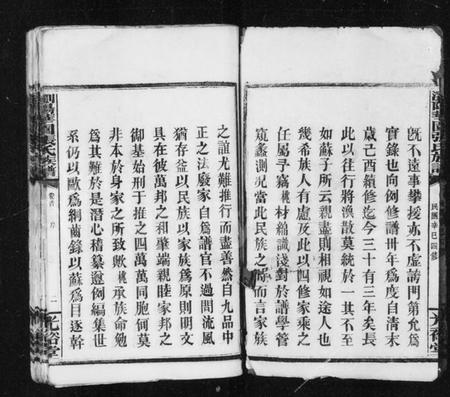 既不遠事攀援亦不虛誇門第允爲
實錄也向例修譜卅年爲度自清末
歲己酉續修迄今三十有三年矣長
此以往行將渙散莫統於一其不至
如蘇子所云親盡則相視如途人也
幾希族人有慮及此以四修家乘之
任屬予嘉桃材綿識淺對於譜學管
窺蠡測况當此民族之時而言家族
之誼尤難推行而盡善然自九品中
正之法廢家自爲譜官不過問流風
猶存益以民族以家族爲原則明文
具在彼萬邦之和肇端親睦家邦之
御基始刑于推之四萬萬同胞何莫
非本於身家之所致歟桃承族命勉
爲其難於是潛心稽纂遵例編集世
系仍以歐爲綱齒錄以蘇爲目逐幹
張氏族譜
卷首
序
二
光裕堂
民國辛巳四修